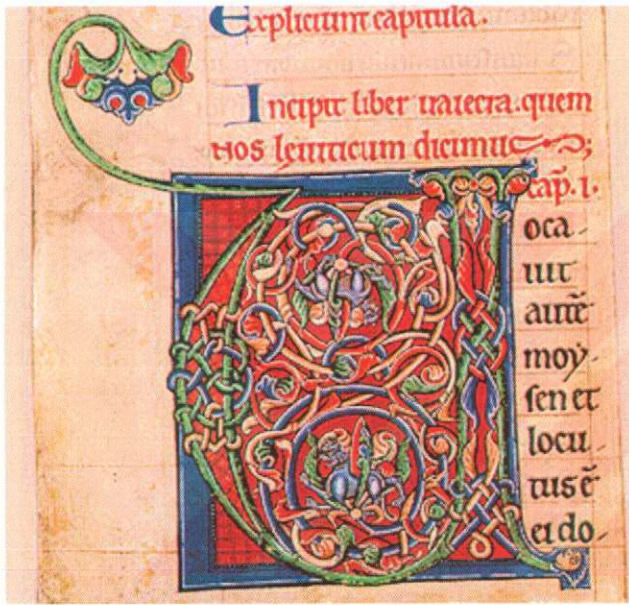 Expliciunt capitula.
Incipit liber uaiecra.quem
nos leuiticum dicimus;
cap̃.1.
oca-
uit
autẽ
moy-
sen et
locu-
tus ẽ
ei do-